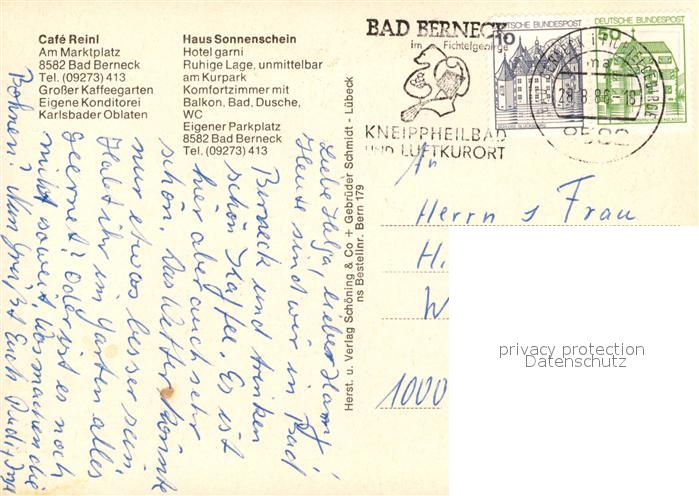 Café Reinl
Am Marktplatz
8582 Bad Berneck
Tel. (09273) 413
Großer Kaffeegarten
Eigene Konditorei
Karlsbader Oblaten
Haus Sonnenschein
Hotel garni
Ruhige Lage, unmittelbar
am Kurpark
Komfortzimmer mit
Balkon, Bad, Dusche,
WC
Eigener Parkplatz
8582 Bad Berneck
Tel. (09273) 413
BAD BERNECK
im Fichtelgebirge
KNEIPPHEILBAD
UND LUFTKURORT
10 DEUTSCHE BUNDESPOST
50 DEUTSCHE BUNDESPOST
28.8.86-18
8582
Herst. u. Verlag Schöning & Co + Gebrüder Schmidt - Lübeck
ns Bestellnr. Bern 179
Liebe Helga, lieber Hans!
Heute sind wir in Bad
Berneck und trinken
schön Kaffee. Es ist
hier aber auch sehr
schön. Das Wetter könnte
nur etwas besser sein.
Habt ihr im Garten alles
geerntet? Oder ist es noch
nicht soweit. Was machen die
Bohnen? Nun grüßt Euch
An
Herrn u Frau
H.
W
1000
privacy protection
Datenschutz